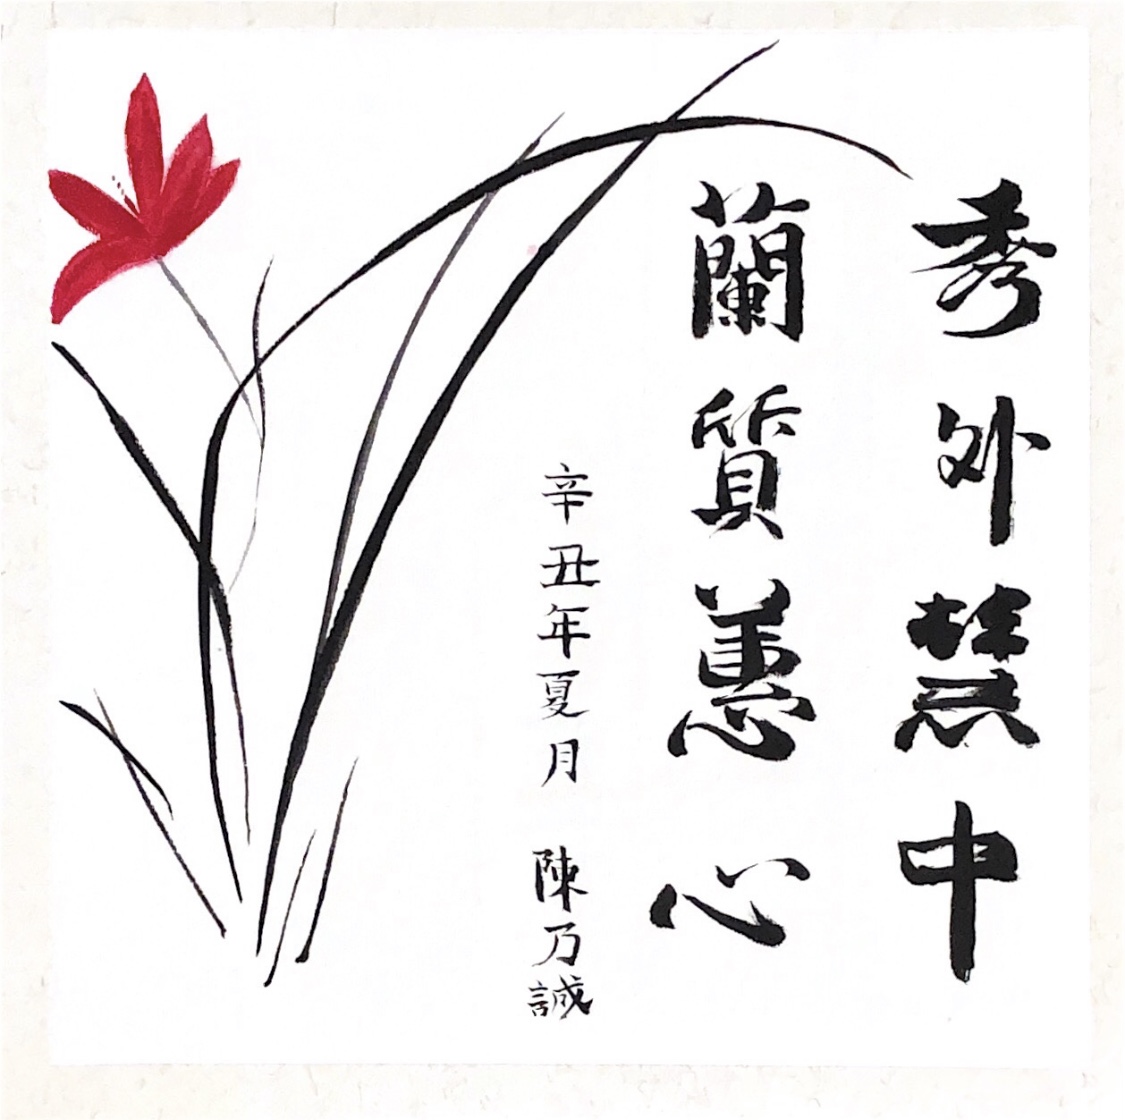 秀外慧中
蘭質蕙心
辛丑年夏月 陳乃誠